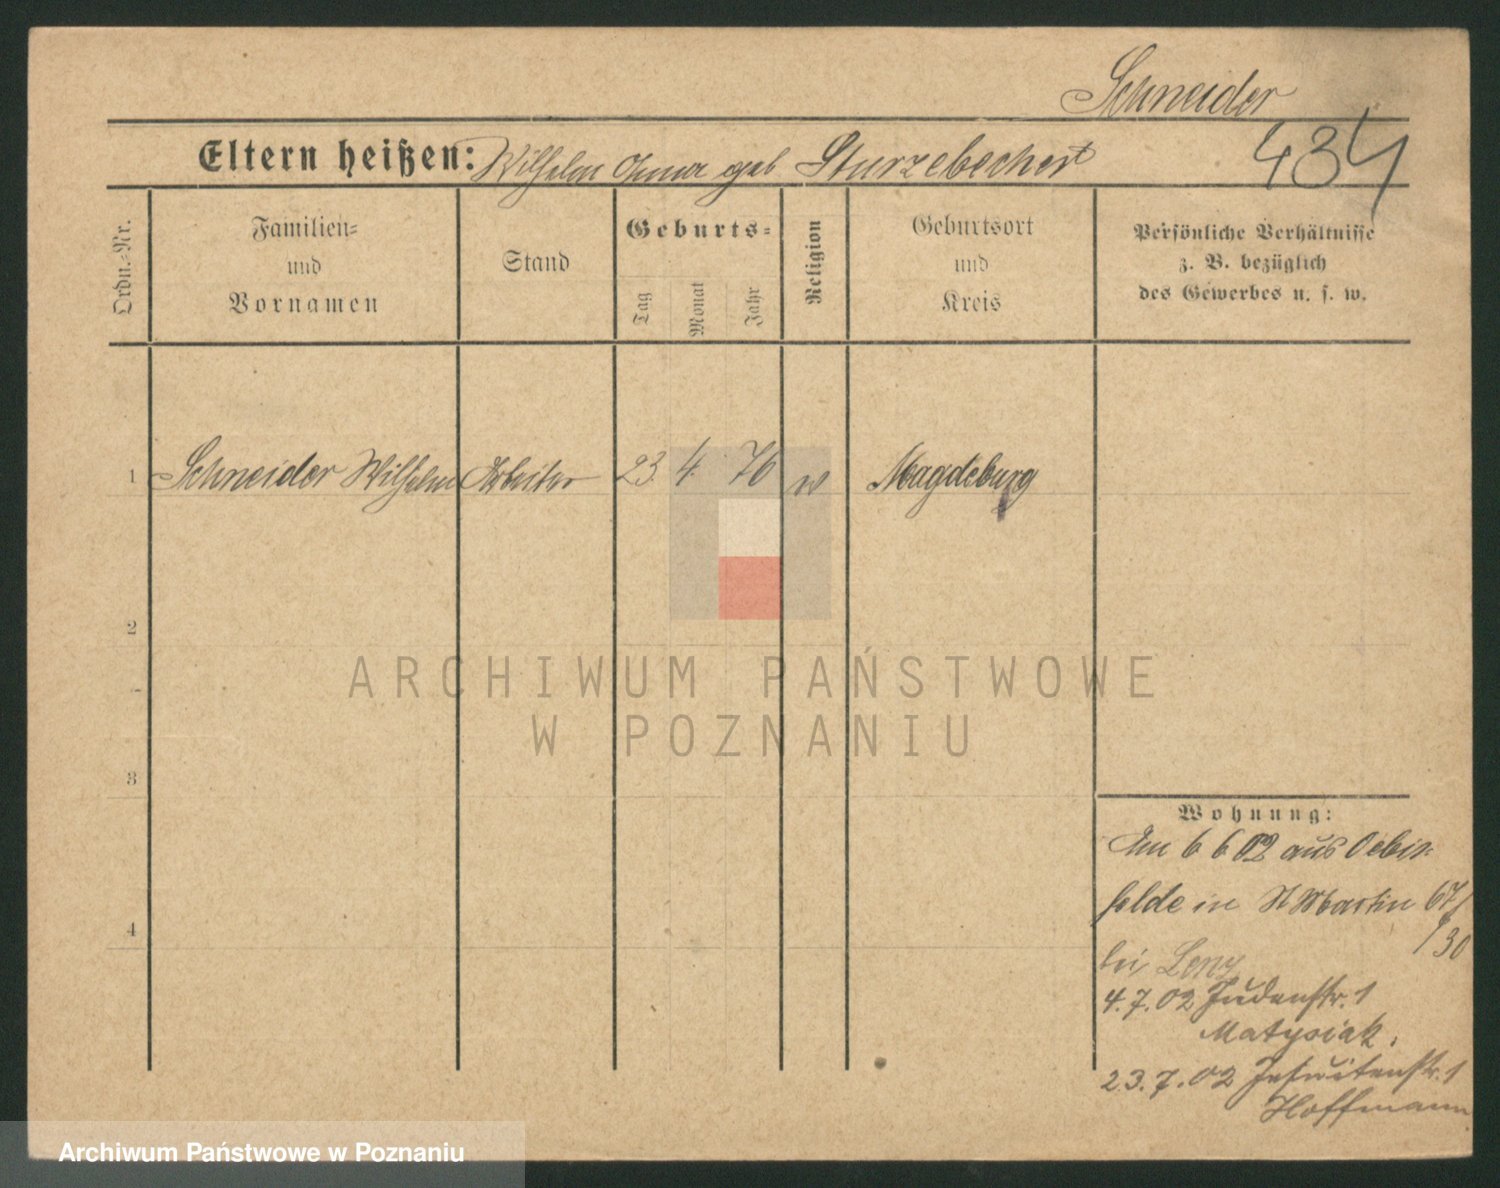 Schneider
434
Eltern heißen: Wilhelm Anna geb Sturzebechert
Ordn.-Nr.
Familien-
und
Vornamen
Stand
Geburts-
Tag
Monat
Jahr
Religion
Geburtsort
und
Kreis
Persönliche Verhältnisse
z. B. bezüglich
des Gewerbes u. s. w.
1 Schneider Wilhelm Arbeiter 23. 4. 76 Magdeburg
2
3
4
Wohnung:
Am 6 6 02 aus Oebis-
felde in St Martin 67/
30
bei Lenz
4.7.02 Judenstr. 1
Matysiak.
23.7.02 Jesuitenstr. 1
Hoffmann
ARCHIWUM PAŃSTWOWE
W POZNANIU
Archiwum Państwowe w Poznaniu